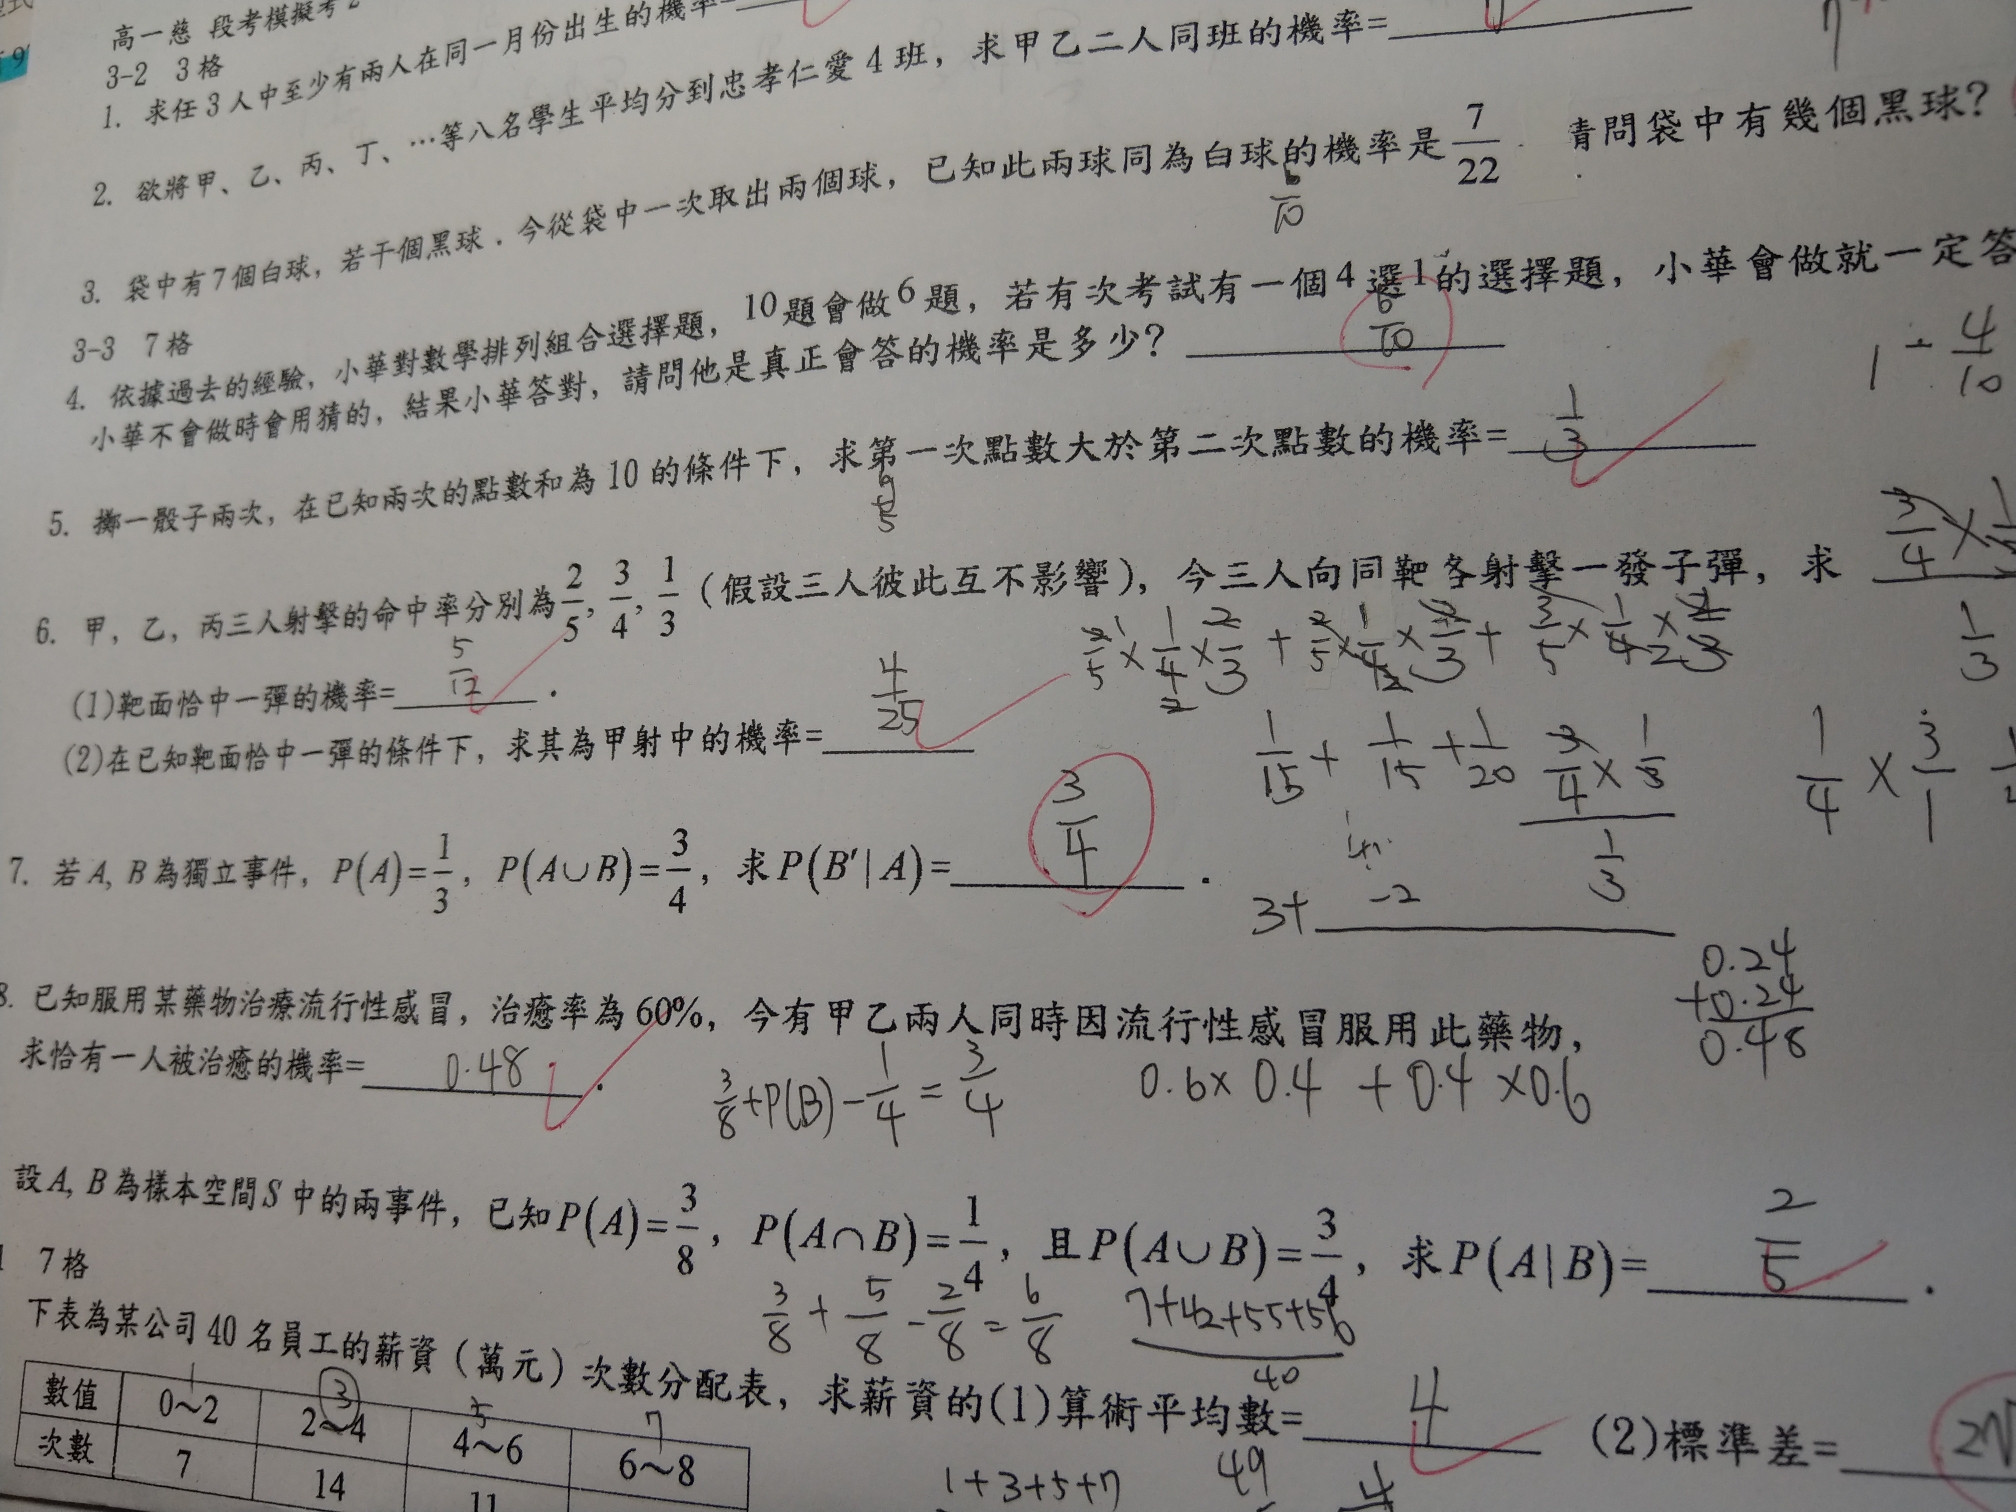 高一慈 段考模擬考2
3-2 3格
1. 求任3人中至少有兩人在同一月份出生的機率=
2. 欲將甲、乙、丙、丁、…等八名學生平均分到忠孝仁愛4班，求甲乙二人同班的機率=
3. 袋中有7個白球，若干個黑球．今從袋中一次取出兩個球，已知此兩球同為白球的機率是7/22．請問袋中有幾個黑球？
6/10
3-3 7格
4. 依據過去的經驗，小華對數學排列組合選擇題，10題會做6題，若有次考試有一個4選1的選擇題，小華會做就一定答
小華不會做時會用猜的，結果小華答對，請問他是真正會答的機率是多少？ 6/10
1-4/10
5. 擲一骰子兩次，在已知兩次的點數和為10的條件下，求第一次點數大於第二次點數的機率= 1/3
6. 甲，乙，丙三人射擊的命中率分別為2/5, 3/4, 1/3（假設三人彼此互不影響），今三人向同靶各射擊一發子彈，求
2/5×1/4×2/3+2/5×1/4×2/3+3/5×1/4×
(1)靶面恰中一彈的機率= 5/12 .
(2)在已知靶面恰中一彈的條件下，求其為甲射中的機率= 4/25
1/15+1/15+1/20
3/4×1/3
1/3
1/4×3/1
7. 若A, B為獨立事件，P(A)=1/3，P(A∪B)=3/4，求P(B′|A)= 3/4 .
3+
-2
0.24
+0.24
0.48
8. 已知服用某藥物治療流行性感冒，治癒率為60%，今有甲乙兩人同時因流行性感冒服用此藥物，
求恰有一人被治癒的機率= 0.48 .
3/8+P(B)-1/4=3/4
0.6×0.4+0.4×0.6
設A, B為樣本空間S中的兩事件，已知P(A)=3/8，P(A∩B)=1/4，且P(A∪B)=3/4，求P(A|B)= 2/5 .
3/8+5/8-2/8=6/8
7+42+55+56
40
7格
下表為某公司40名員工的薪資（萬元）次數分配表，求薪資的(1)算術平均數= 4 (2)標準差=
1 3 5 7
數值 0~2 2~4 4~6 6~8
次數 7 14 11
1+3+5+7
49